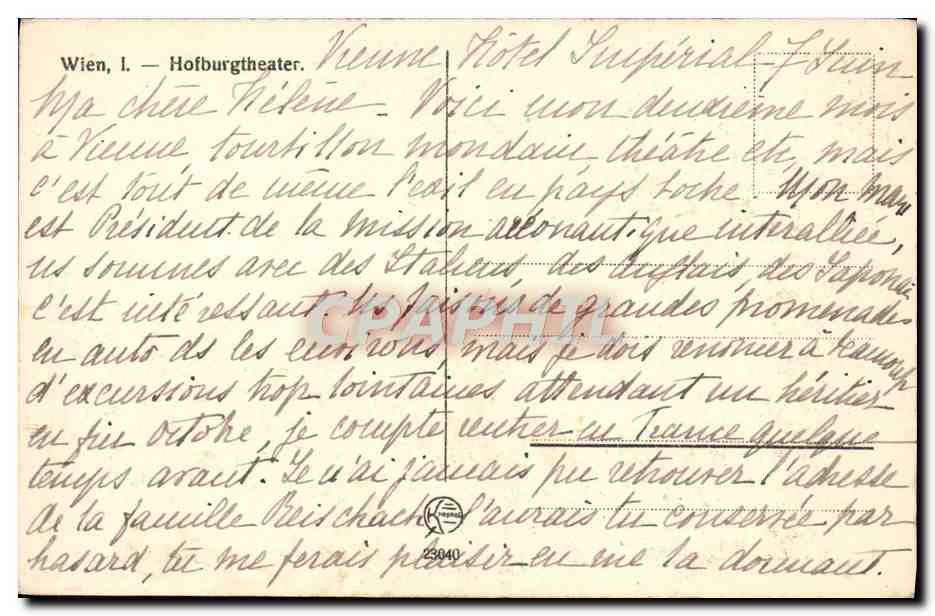 Wien, I. — Hofburgtheater.
Vienne Hôtel Impérial - 7 Juin
Ma chère Hélène - Voici mon deuxième mois
à Vienne tourbillon mondain, théâtre etc, mais
c'est tout de même l'exil en pays boche. Mon mari
est Président de la mission aéronautique interalliée,
ns sommes avec des Italiens des Anglais, des Japonais
c'est intéressant. Ns faisons de grandes promenades
en auto ds les environs mais je dois renoncer à beaucoup
d'excursions trop lointaines attendant un héritier
en fin Octobre, je compte rentrer en France quelque
temps avant. Je n'ai jamais pu retrouver l'adresse
de la famille Reischach l'aurais tu conservée par
hasard, tu me ferais plaisir en me la donnant.
CPAPHIL
23040